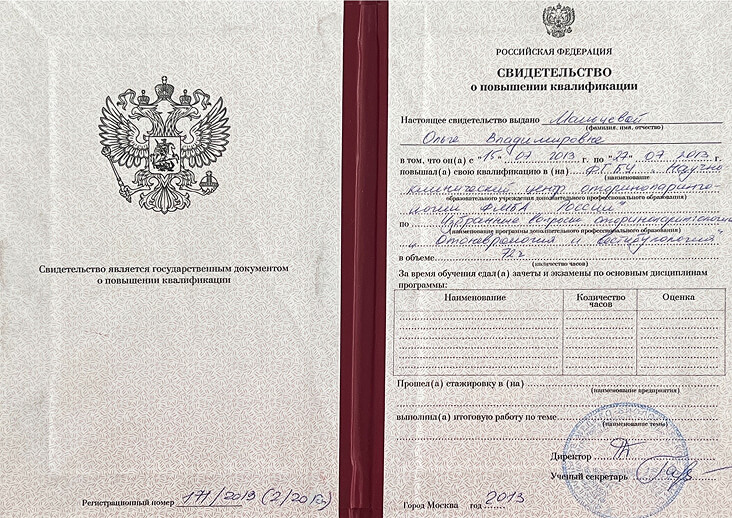 Свидетельство является государственным документом
о повышении квалификации
Регистрационный номер
РОССИЙСКАЯ ФЕДЕРАЦИЯ
СВИДЕТЕЛЬСТВО
о повышении квалификации
Настоящее свидетельство выдано
(фамилия, имя, отчество)
Ольге Владимировне
в том, что он(а) с "15" 07 2013 г. по "27" 07 2013 г.
повышал(а) свою квалификацию в (на) ФГБУ „Научно
(наименование
клинический центр оториноларинго-
образовательного учреждения дополнительного профессионального образования)
логии ФМБА России"
по Избранные вопросы оториноларингологии
(наименование программы дополнительного профессионального образования)
„Отоневрология и вестибулология"
в объеме 72ч
(количество часов)
За время обучения сдал(а) зачеты и экзамены по основным дисциплинам
программы:
Наименование Количество часов Оценка
Прошел(а) стажировку в (на)
(наименование предприятия)
выполнил(а) итоговую работу по теме
(наименование темы)
Директор
Ученый секретарь
Город Москва год 2013